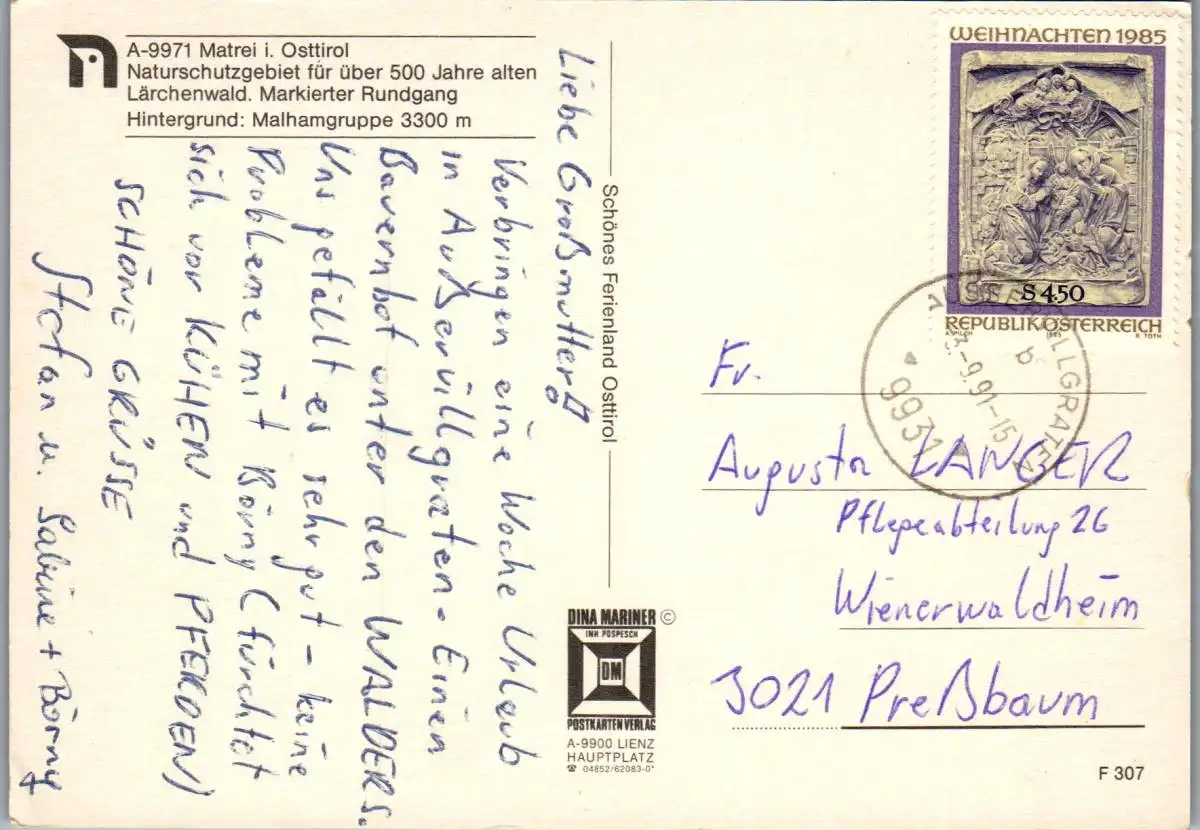 A-9971 Matrei i. Osttirol
Naturschutzgebiet für über 500 Jahre alten
Lärchenwald. Markierter Rundgang
Hintergrund: Malhamgruppe 3300 m
Liebe Großmutter!
Verbringen eine Woche Urlaub
in Außervillgraten - Einen
Bauernhof unter den WALDERS.
Uns gefällt es sehr gut - keine
Probleme mit Börny (fürchtet
sich vor KÜHEN und PFERDEN)
SCHÖNE GRÜSSE
Stefan u. Sabine + Börny
Schönes Ferienland Osttirol
DINA MARINER ©
INH POSPESCH
DM
POSTKARTENVERLAG
A-9900 LIENZ
HAUPTPLATZ
☎ 04852/62083-0*
WEIHNACHTEN 1985
S 4.50
REPUBLIK ÖSTERREICH
1985
K. TOTH
AUSSERVILLGRATEN
b
-9.91-15
9931
Fr.
Augusta LANGER
Pflegeabteilung 26
Wienerwaldheim
3021 Preßbaum
F 307